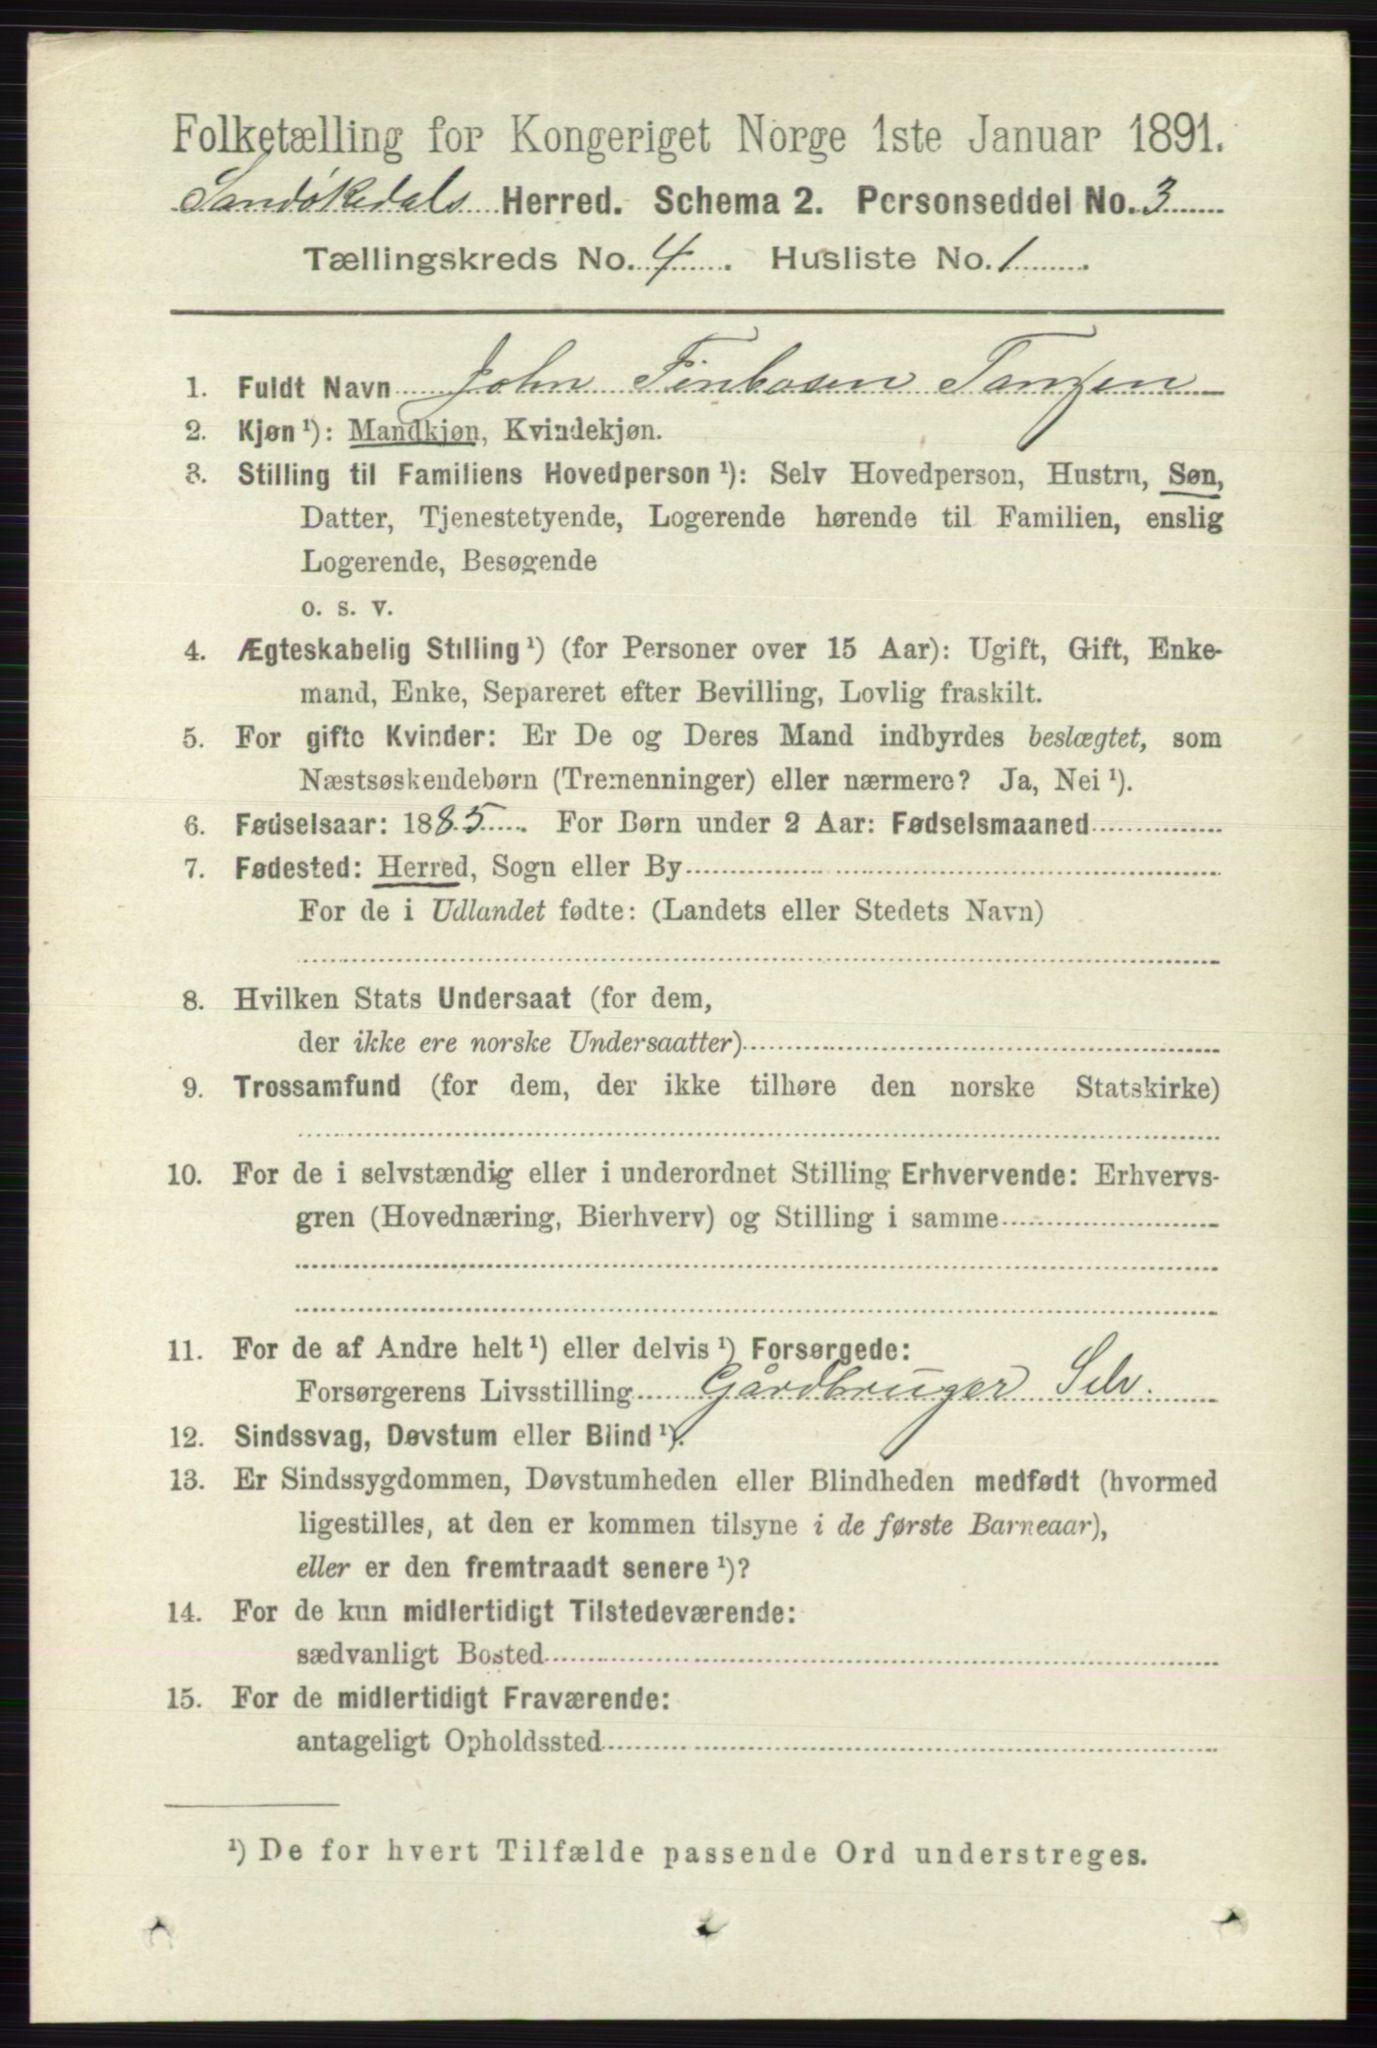 Folketælling for Kongeriget Norge 1ste Januar 1891.
Sandøkedals Herred. Schema 2. Personseddel No. 3
Tællingskreds No. 4. Husliste No. 1.
1. Fuldt Navn John Finbosen Tangen
2. Kjøn ¹): Mandkjøn, Kvindekjøn.
3. Stilling til Familiens Hovedperson ¹): Selv Hovedperson, Hustru, Søn,
Datter, Tjenestetyende, Logerende hørende til Familien, enslig
Logerende, Besøgende
o. s. v.
4. Ægteskabelig Stilling ¹) (for Personer over 15 Aar): Ugift, Gift, Enke-
mand, Enke, Separeret efter Bevilling, Lovlig fraskilt.
5. For gifte Kvinder: Er De og Deres Mand indbyrdes beslægtet, som
Næstsøskendebørn (Tremenninger) eller nærmere? Ja, Nei ¹).
6. Fødselsaar: 1885. For Børn under 2 Aar: Fødselsmaaned
7. Fødested: Herred, Sogn eller By
For de i Udlandet fødte: (Landets eller Stedets Navn)
8. Hvilken Stats Undersaat (for dem,
der ikke ere norske Undersaatter)
9. Trossamfund (for dem, der ikke tilhøre den norske Statskirke)
10. For de i selvstændig eller i underordnet Stilling Erhvervende: Erhvervs-
gren (Hovednæring, Bierhverv) og Stilling i samme
11. For de af Andre helt ¹) eller delvis ¹) Forsørgede:
Forsørgerens Livsstilling Gårdbruger Selv.
12. Sindssvag, Døvstum eller Blind ¹).
13. Er Sindssygdommen, Døvstumheden eller Blindheden medfødt (hvormed
ligestilles, at den er kommen tilsyne i de første Barneaar),
eller er den fremtraadt senere ¹)?
14. For de kun midlertidigt Tilstedeværende:
sædvanligt Bosted
15. For de midlertidigt Fraværende:
antageligt Opholdssted
¹) De for hvert Tilfælde passende Ord understreges.